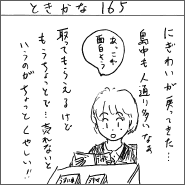 ときかな 165
にぎわいが戻ってきた…
島中も人通り多いなぁ
あ、これ
面白そう
取ってもらえるけど
もうちょっとで…売れないと
いうのがちょっとくやしい!!